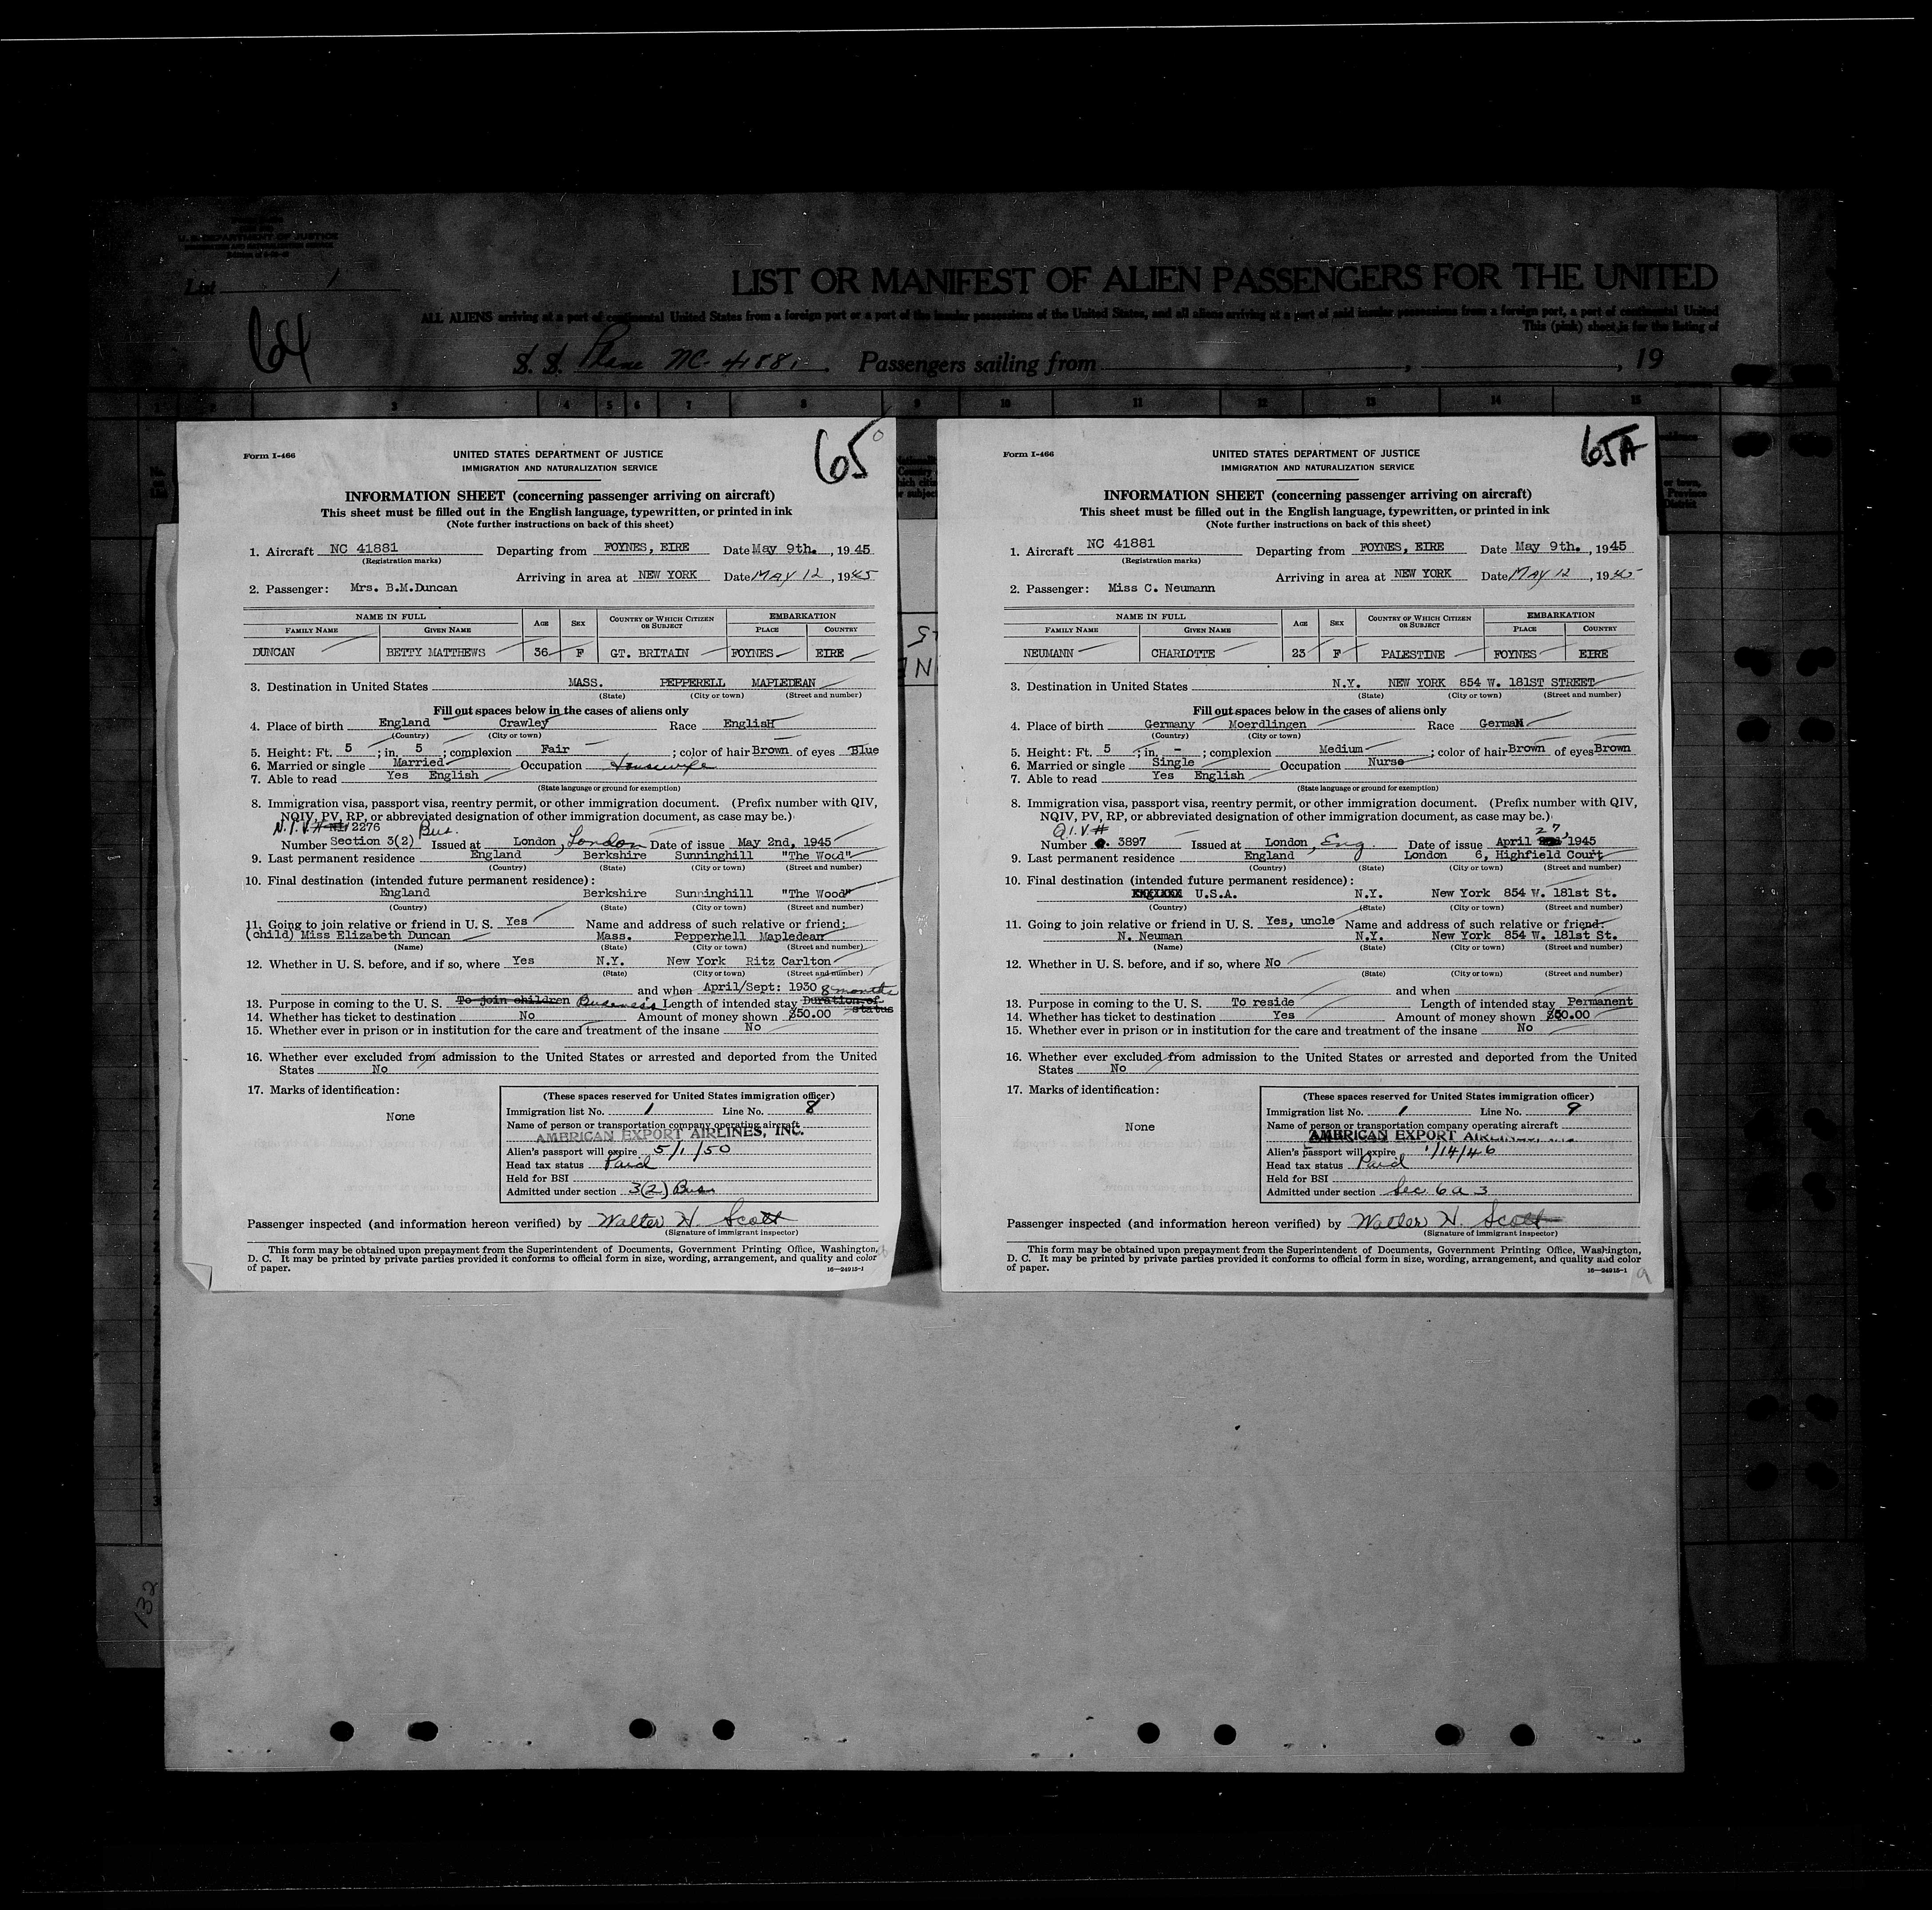 U. S. DEPARTMENT OF JUSTICE
IMMIGRATION AND NATURALIZATION SERVICE
List 1
LIST OR MANIFEST OF ALIEN PASSENGERS FOR THE UNITED
ALL ALIENS arriving at a port of continental United States from a foreign port or a port of the insular possessions of the United States, and all aliens arriving at a port of said insular possessions from a foreign port, a port of continental United
This (pink) sheet is for the listing of
64
S. S. Plane NC- 41881. Passengers sailing from , , 19
1 2 3 4 5 6 7 8 9 10 11 12 13 14 15
65
Form I-466
UNITED STATES DEPARTMENT OF JUSTICE
IMMIGRATION AND NATURALIZATION SERVICE
INFORMATION SHEET (concerning passenger arriving on aircraft)
This sheet must be filled out in the English language, typewritten, or printed in ink
(Note further instructions on back of this sheet)
1. Aircraft NC 41881 Departing from FOYNES, EIRE Date May 9th. , 1945
(Registration marks)
Arriving in area at NEW YORK Date MAY 12 , 1945
2. Passenger: Mrs. B.M.Duncan
NAME IN FULL AGE SEX COUNTRY OF WHICH CITIZEN OR SUBJECT EMBARKATION
FAMILY NAME GIVEN NAME PLACE COUNTRY
DUNCAN BETTY MATTHEWS 36 F GT. BRITAIN FOYNES EIRE
3. Destination in United States MASS. PEPPERELL MAPLEDEAN
(State) (City or town) (Street and number)
Fill out spaces below in the cases of aliens only
4. Place of birth England Crawley Race English
(Country) (City or town)
5. Height: Ft. 5 ; in. 5 ; complexion Fair ; color of hair Brown of eyes Blue
6. Married or single Married Occupation Housewife
7. Able to read Yes English
(State language or ground for exemption)
8. Immigration visa, passport visa, reentry permit, or other immigration document. (Prefix number with QIV,
NQIV, PV, RP, or abbreviated designation of other immigration document, as case may be.)
N.I.V.# NIV 2276 Bus.
Number Section 3(2) Issued at London, London Date of issue May 2nd, 1945
9. Last permanent residence England Berkshire Sunninghill "The Wood"
(Country) (State) (City or town) (Street and number)
10. Final destination (intended future permanent residence):
England Berkshire Sunninghill "The Wood"
(Country) (State) (City or town) (Street and number)
11. Going to join relative or friend in U. S. Yes Name and address of such relative or friend:
(child) Miss Elizabeth Duncan Mass. Pepperhell Mapledean
(Name) (State) (City or town) (Street and number)
12. Whether in U. S. before, and if so, where Yes N.Y. New York Ritz Carlton
(State) (City or town) (Street and number)
and when April/Sept: 1930 8 months
13. Purpose in coming to the U. S. To join children Business Length of intended stay Duration of status
14. Whether has ticket to destination No Amount of money shown $50.00
15. Whether ever in prison or in institution for the care and treatment of the insane No
16. Whether ever excluded from admission to the United States or arrested and deported from the United
States No
17. Marks of identification:
None
(These spaces reserved for United States immigration officer)
Immigration list No. 1 Line No. 8
Name of person or transportation company operating aircraft
AMERICAN EXPORT AIRLINES, INC.
Alien's passport will expire 5/1/50
Head tax status Paid
Held for BSI
Admitted under section 3(2) Bus
Passenger inspected (and information hereon verified) by Walter H. Scott
(Signature of immigrant inspector)
This form may be obtained upon prepayment from the Superintendent of Documents, Government Printing Office, Washington,
D. C. It may be printed by private parties provided it conforms to official form in size, wording, arrangement, and quality and color
of paper. 16—24915-1
65A
Form I-466
UNITED STATES DEPARTMENT OF JUSTICE
IMMIGRATION AND NATURALIZATION SERVICE
INFORMATION SHEET (concerning passenger arriving on aircraft)
This sheet must be filled out in the English language, typewritten, or printed in ink
(Note further instructions on back of this sheet)
1. Aircraft NC 41881 Departing from FOYNES, EIRE Date May 9th. , 1945
(Registration marks)
Arriving in area at NEW YORK Date MAY 12 , 1945
2. Passenger: Miss C. Neumann
NAME IN FULL AGE SEX COUNTRY OF WHICH CITIZEN OR SUBJECT EMBARKATION
FAMILY NAME GIVEN NAME PLACE COUNTRY
NEUMANN CHARLOTTE 23 F PALESTINE FOYNES EIRE
3. Destination in United States N.Y. NEW YORK 854 W. 181ST STREET
(State) (City or town) (Street and number)
Fill out spaces below in the cases of aliens only
4. Place of birth Germany Moerdlingen Race German
(Country) (City or town)
5. Height: Ft. 5 ; in. - ; complexion Medium ; color of hair Brown of eyes Brown
6. Married or single Single Occupation Nurse
7. Able to read Yes English
(State language or ground for exemption)
8. Immigration visa, passport visa, reentry permit, or other immigration document. (Prefix number with QIV,
NQIV, PV, RP, or abbreviated designation of other immigration document, as case may be.)
Q.I.V.# 27,
Number 3897 Issued at London, Eng. Date of issue April 1945
9. Last permanent residence England London 6, Highfield Court
(Country) (State) (City or town) (Street and number)
10. Final destination (intended future permanent residence):
U.S.A. N.Y. New York 854 W. 181st St.
(Country) (State) (City or town) (Street and number)
11. Going to join relative or friend in U. S. Yes, uncle Name and address of such relative or friend:
N. Neuman N.Y. New York 854 W. 181st St.
(Name) (State) (City or town) (Street and number)
12. Whether in U. S. before, and if so, where No
(State) (City or town) (Street and number)
and when
13. Purpose in coming to the U. S. To reside Length of intended stay Permanent
14. Whether has ticket to destination Yes Amount of money shown $50.00
15. Whether ever in prison or in institution for the care and treatment of the insane No
16. Whether ever excluded from admission to the United States or arrested and deported from the United
States No
17. Marks of identification:
None
(These spaces reserved for United States immigration officer)
Immigration list No. 1 Line No. 9
Name of person or transportation company operating aircraft
AMERICAN EXPORT
Alien's passport will expire 1/14/46
Head tax status Paid
Held for BSI
Admitted under section Sec 6 a 3
Passenger inspected (and information hereon verified) by Walter H. Scott
(Signature of immigrant inspector)
This form may be obtained upon prepayment from the Superintendent of Documents, Government Printing Office, Washington,
D. C. It may be printed by private parties provided it conforms to official form in size, wording, arrangement, and quality and color
of paper. 16—24915-1
9
132